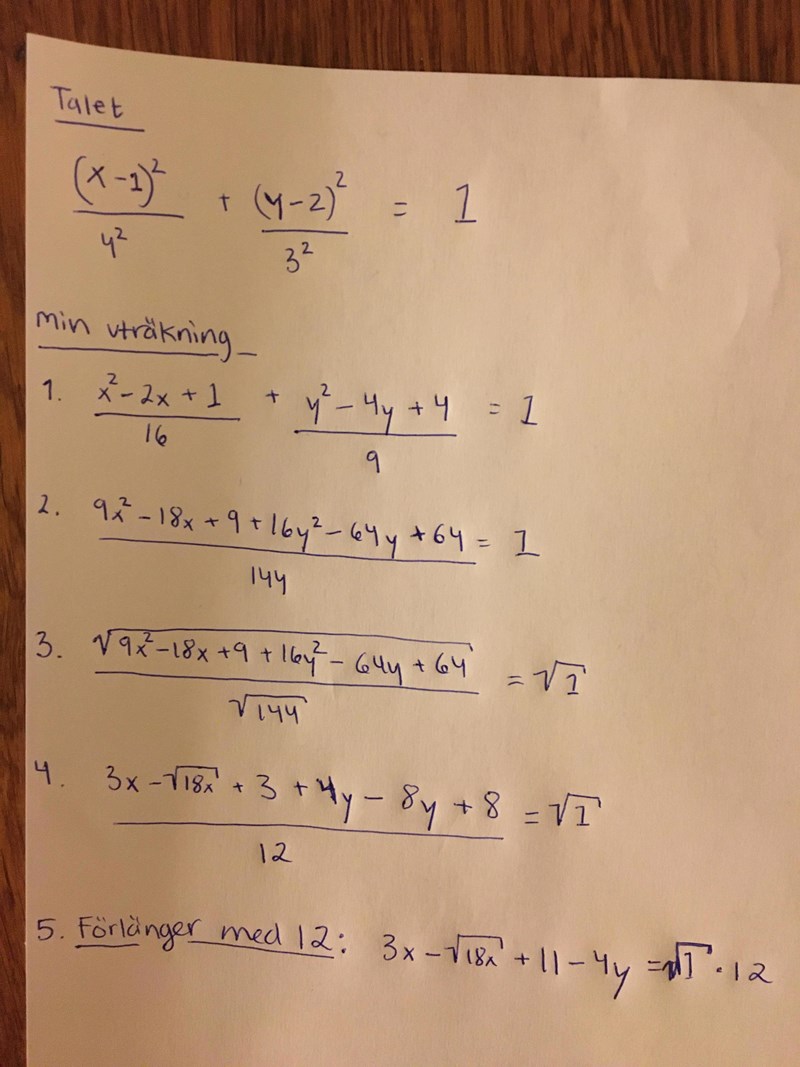 Talet
(x-1)²/4² + (y-2)²/3² = 1
Min uträkning
1. (x² - 2x + 1)/16 + (y² - 4y + 4)/9 = 1
2. (9x² - 18x + 9 + 16y² - 64y + 64)/144 = 1
3. √(9x² - 18x + 9 + 16y² - 64y + 64)/√144 = √1
4. (3x - √18x + 3 + 4y - 8y + 8)/12 = √1
5. Förlänger med 12: 3x - √18x + 11 - 4y = √1 · 12